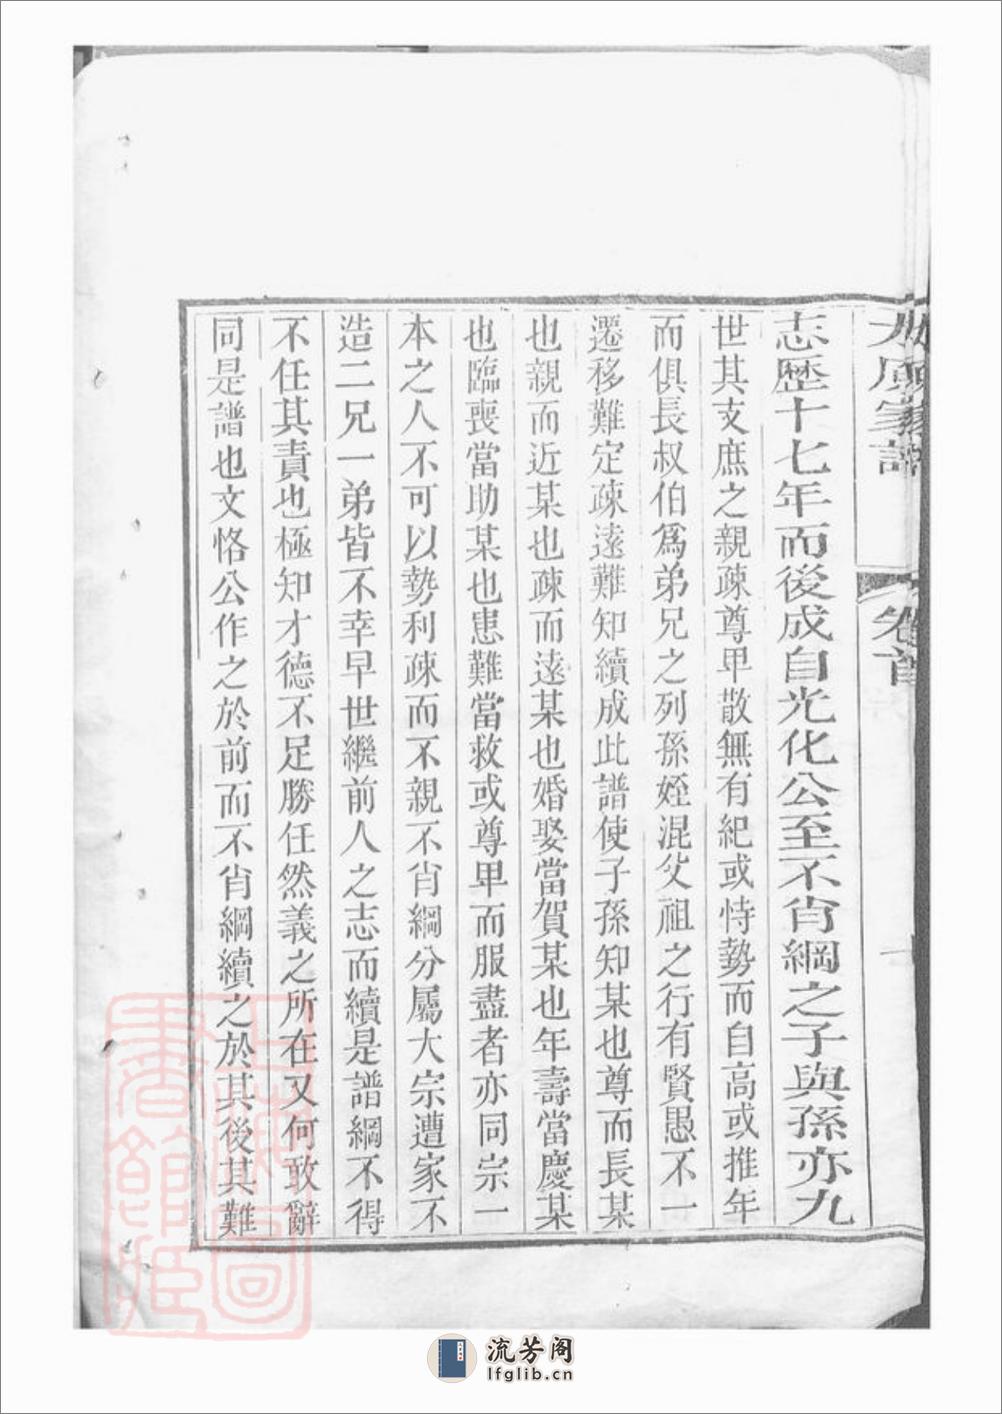 家譜
卷首
一
志歷十七年而後成自光化公至不肖綱之子與孫亦九
世其支庶之親疎尊甲散無有紀或恃勢而自高或推年
而俱長叔伯爲弟兄之列孫姪混父祖之行有賢愚不一
遷移難定疎遠難知續成此譜使子孫知某也尊而長某
也親而近某也疎而遠某也婚娶當賀某也年壽當慶某
也臨喪當助某也患難當救或尊甲而服盡者亦同宗一
本之人不可以勢利疎而不親不肖綱分屬大宗遭家不
造二兄一弟皆不幸早世繼前人之志而續是譜綱不得
不任其責也極知才德不足勝任然義之所在又何敢辭
同是譜也文恪公作之於前而不肖綱續之於其後其難
上海圖
書館藏
流芳阁
lfglib.cn